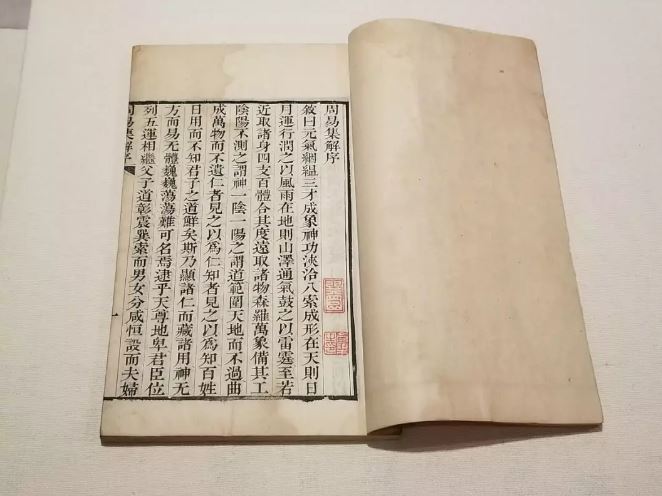 周易集解序
敘曰元氣絪縕三才成象神功浹洽八索成形在天則日
月運行潤之以風雨在地則山澤通氣鼓之以雷霆至若
近取諸身四支百體合其度遠取諸物森羅萬象備其工
陰陽不測之謂神一陰一陽之謂道範圍天地而不過曲
成萬物而不遺仁者見之以為仁知者見之以為知百姓
日用而不知君子之道鮮矣斯乃顯諸仁而藏諸用神无
方而易无體巍巍蕩蕩難可名焉逮乎天尊地卑君臣位
列五運相繼父子道彰震巽索而男女分咸恒設而夫婦
周易集解序